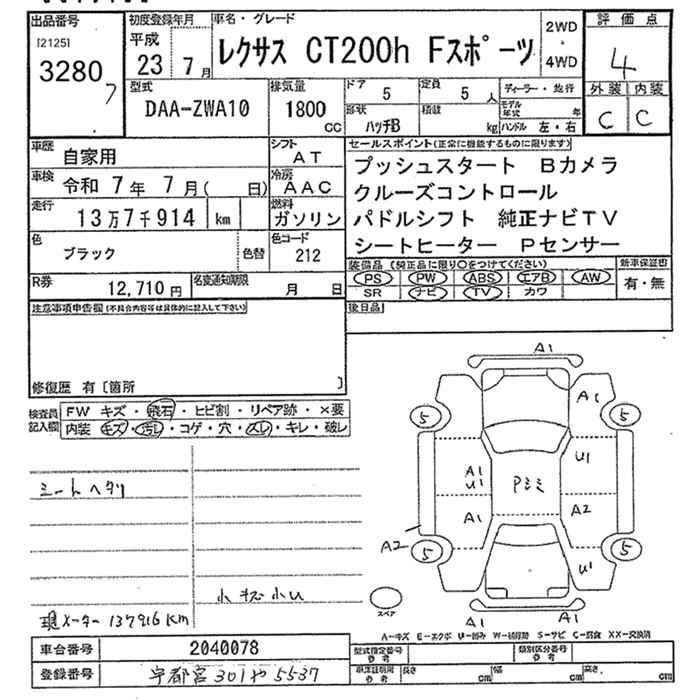 出品番号
[2125]
3280
7
初度登録年月
平成
23 7月
車名・グレード
レクサス CT200h Fスポーツ
2WD
・
4WD
評価点
4
外装 内装
C C
型式
DAA-ZWA10
排気量
1800
CC
ドア
5
定員
5人
形状
ハッチB
積載
kg
ディーラー・並行
モデル年式 年
ハンドル 左・右
車歴
自家用
シフト
AT
車検
令和 7年 7月( 日)
冷房
AAC
走行
13万7千914 km
燃料
ガソリン
色
ブラック
色替
色コード
212
R券
12,710円
名変通知期限
月 日
セールスポイント(正常に機能するものに限ります)
プッシュスタート Bカメラ
クルーズコントロール
パドルシフト 純正ナビTV
シートヒーター Pセンサー
装備品 (純正品に限り○をつけてください)
PS PW ABS エアB AW
SR ナビ TV カワ
新車保証書
有・無
後日品
注意事項申告欄(不具合内容等は具体的に記入して下さい)
修復歴 有〔箇所 〕
検査員記入欄
FW キズ・飛石・ヒビ割・リペア跡・×要
内装 キズ・汚れ・コゲ・穴・スレ・キレ・破レ
シートヘタリ
小キズ小U
現メーター 137916Km
A1
A1
5
5
U1
A1
U1
Pミミ
A1
A2
A2
5
5
U1
スペア
A1
A1
A-キズ E-エクボ U-凹み W-補修跡 S-サビ C-腐食 XX-交換済
車台番号
2040078
登録番号
宇都宮301や5537
型式指定番号
参考
類別区分番号
参考
車体証明用
参考
長さ cm
幅 cm
高さ cm